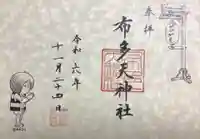 奉拝
布多天神社
令和六年
十一月二十四日